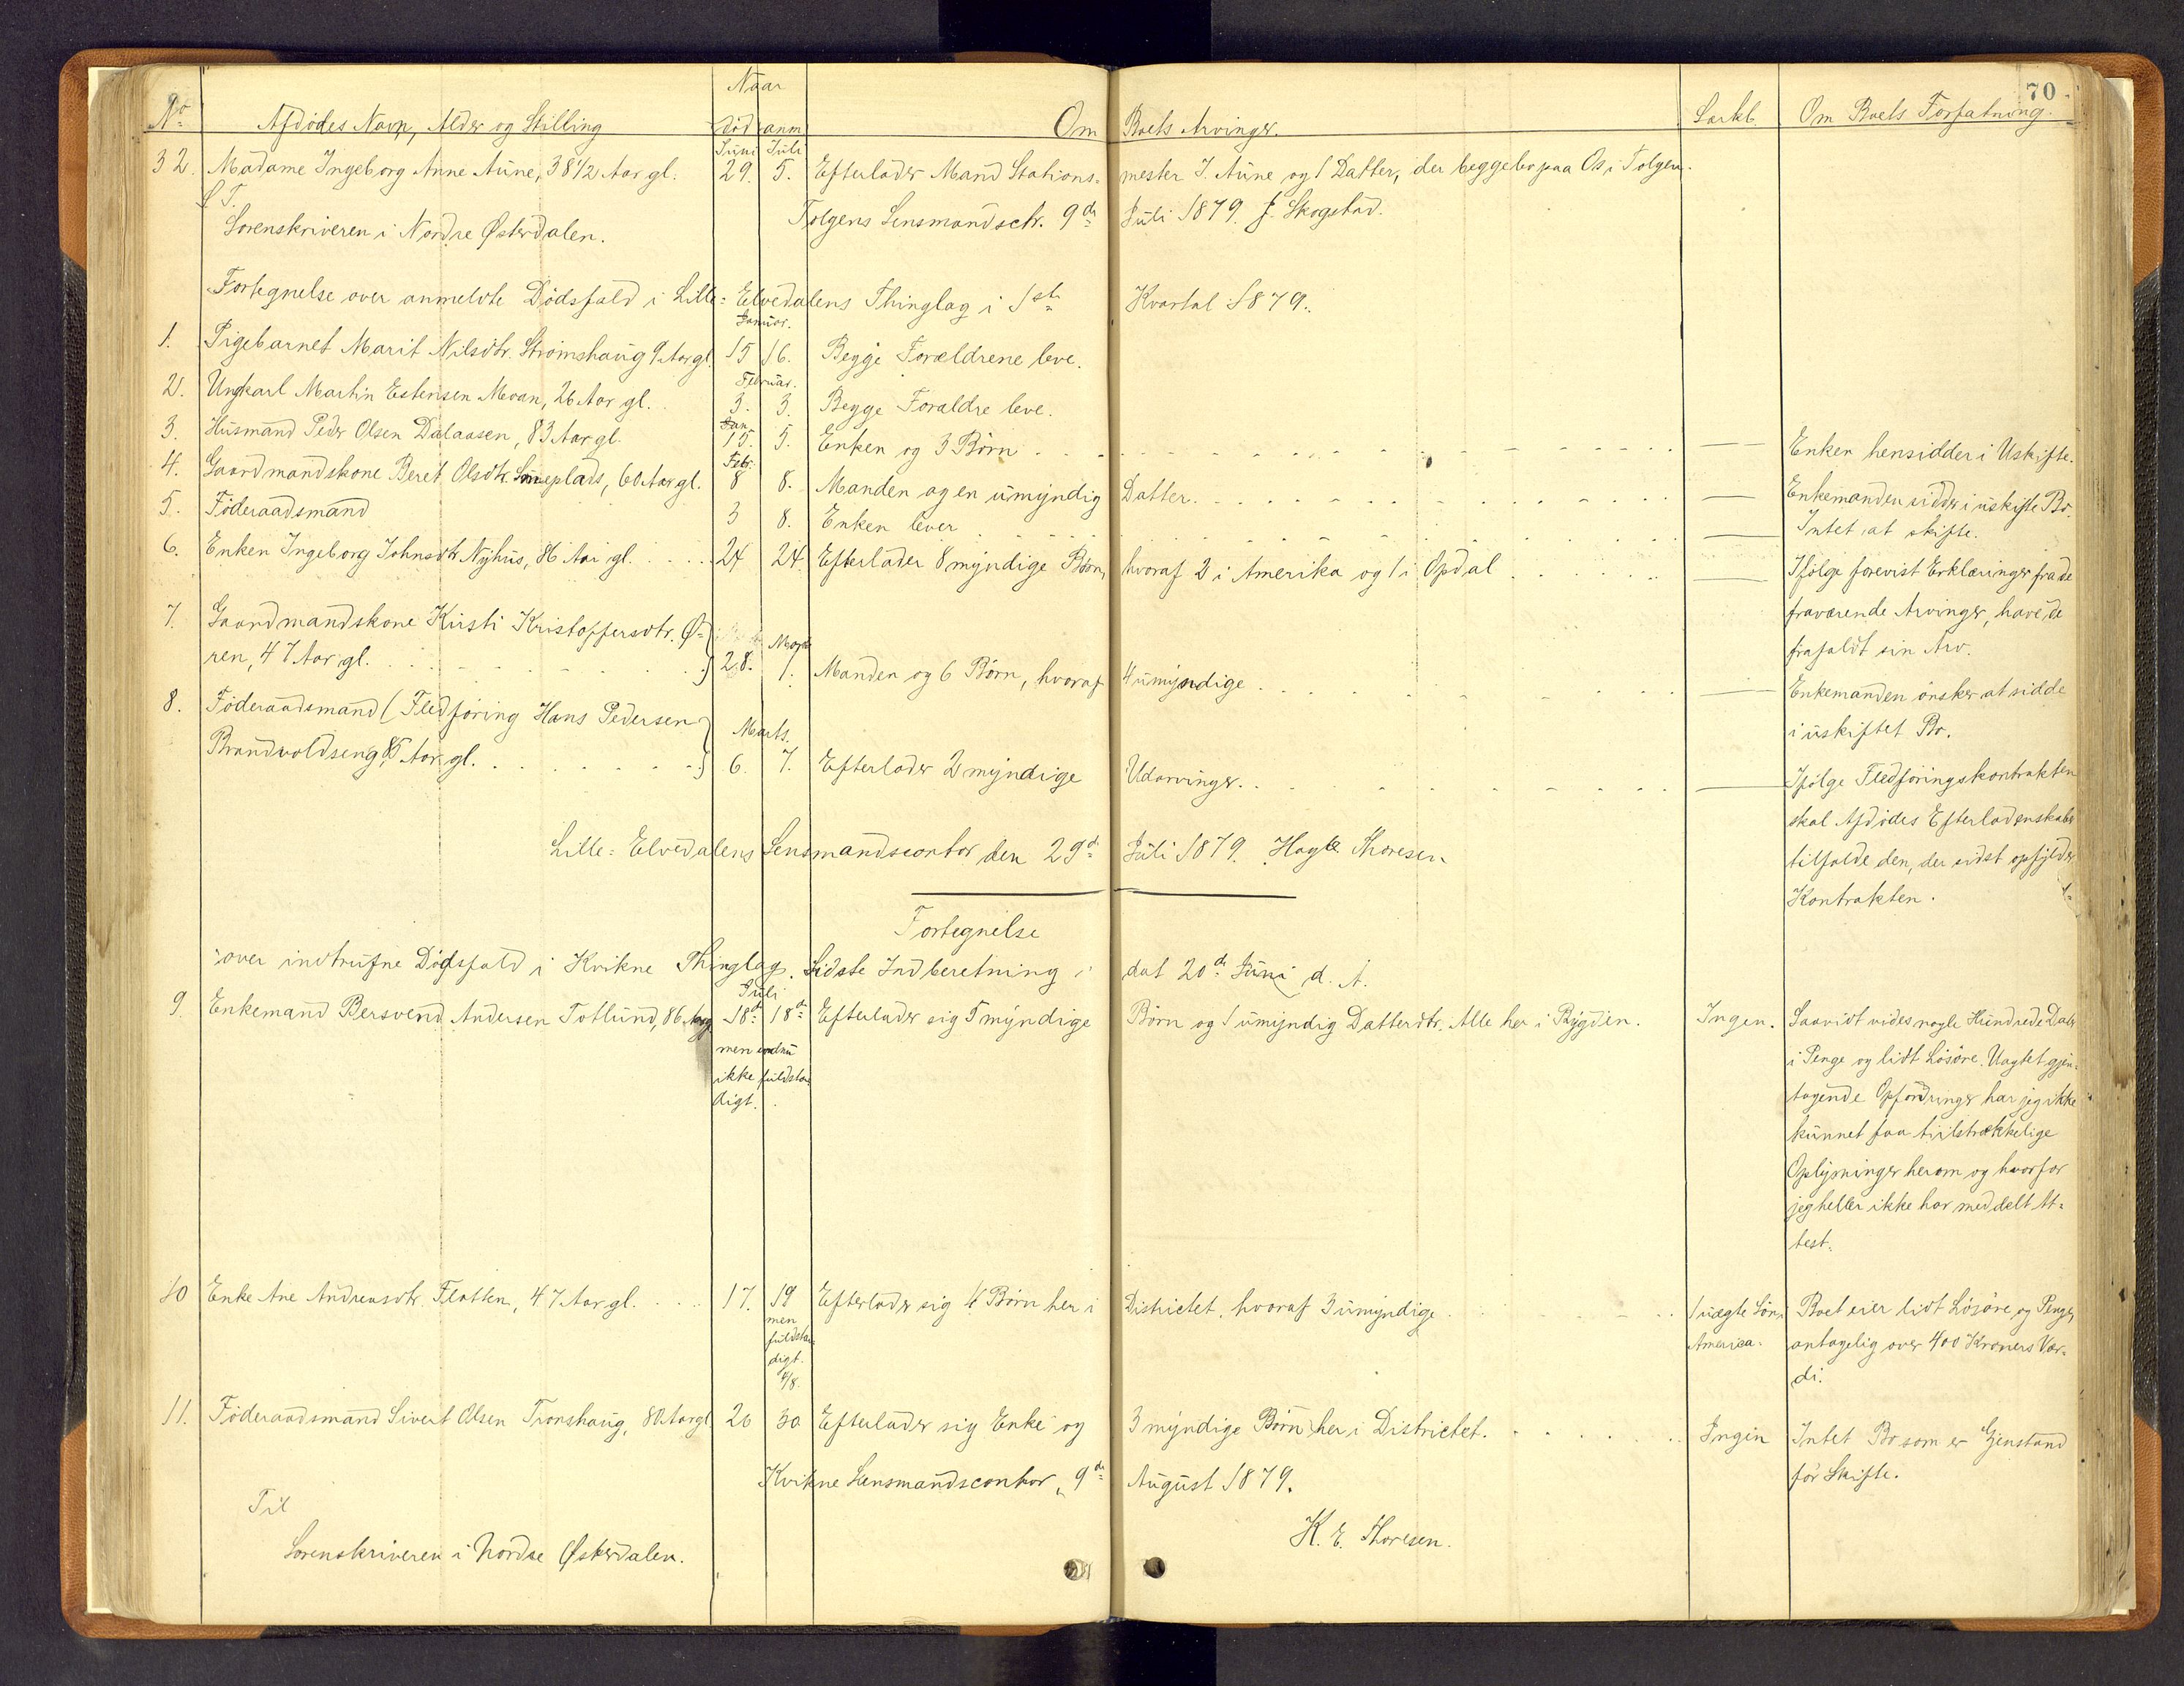 70
Naar
No Afdödes Navn, Alder og Stilling död anm Om Boets Arvinger. Særkb. Om Boets Forfatning.
Juni Juli
32. Madame Ingeborg Anne Aune, 38 1/2 Aar gl. 29. 5. Efterlader Mand Stations= mester J. Aune og 1 Datter, der begge bo paa Os i Tolgen.
S. T. Tolgens Lensmandsctr. 9de Juli 1879. J. Skogstad.
Sorenskriveren i Nordre Østerdalen.
Fortegnelse over anmeldte Dödsfald i Lille= Elvedalens Thinglag i 1ste Kvartal 1879.
Januar.
1. Pigebarnet Marit Nilsdtr. Strömshaug 9 Aar gl. 15 16. Begge Forældrene leve.
Februar.
2. Ungkarl Martin Estensen Moan, 26 Aar gl. 3. 3. Begge Forældre leve.
Jan.
3. Husmand Peder Olsen Dalaasen, 83 Aar gl. 15. 5. Enken og 3 Börn Enken hensidder i Uskifte.
Feb.
4. Gaardmandskone Beret Olsdtr. Sæneplads, 60 Aar gl. 8 8. Manden og en umyndig Datter. Enkemanden sidder i uskifte Bo.
5. Föderaadsmand 3 8. Enken lever Intet at skifte.
6. Enken Ingeborg Johnsdtr. Nyhus, 86 Aar gl. 24 24. Efterlader 8 myndige Börn, hvoraf 2 i Amerika og 1 i Opdal Ifölge forevist Erklæringer fra de
fraværende Arvinger, have de
frafaldt sin Arv.
7. Gaardmandskone Kirsti Kristoffersdtr. Ø=
Marts
ren, 47 Aar gl. 28. 1. Manden og 6 Börn, hvoraf 4 umyndige Enkemanden önsker at sidde
i uskiftet Bo.
8. Föderaadsmand (Fledföring Hans Pedersen
Marts.
Brandvoldseng, 85 Aar gl. 6. 7. Efterlader 2 myndige Udarvinger. Ifölge Fledföringskontrakten
skal Afdödes Efterladenskaber
tilfalde den, der sidst opfylder
Kontrakten.
Lille= Elvedalens Lensmandscontor den 29de Juli 1879. Hagb. Thoresen
Fortegnelse
over indtrufne Dödsfald i Kvikne Thinglag. Sidste Indberetning dat 20de Juni d. A.
Juli
9. Enkemand Bersvend Andersen Totlund, 86 Aar gl 18de 18de Efterlader sig 5 myndige Börn og 1 umyndig Datterdtr. Alle her i Bygden. Ingen. Saavidt vides nogle Hundrede Daler
men endnu
ikke fuldstæn
digt.
i Penge og lidt Lösöre. Uagtet gjen=
tagende Opfordringer har jeg ikke
kunnet faa tilstrækkelige
Oplysninger herom og hvorfor
jeg heller ikke har meddelt At=
test.
10 Enke Ane Andreasdtr. Flatten, 47 Aar gl. 17. 19 Efterlader sig 4 Börn her i Districtet, hvoraf 3 umyndige 1 uægte Sön i Boet eier lidt Lösöre og Penge,
men
fuldstæn
digt.
6/8.
America. antagelig over 400 Kroners Vær=
di.
11. Föderaadsmand Sivert Olsen Tronshaug, 80 Aar gl 20 30 Efterlader sig Enke og 3 myndige Börn her i Districtet. Ingen Intet Bo som er Gjenstand
for Skifte.
Kvikne Lensmandscontor, 9de August 1879.
Til K. E. Thoresen.
Sorenskriveren i Nordre Østerdalen.